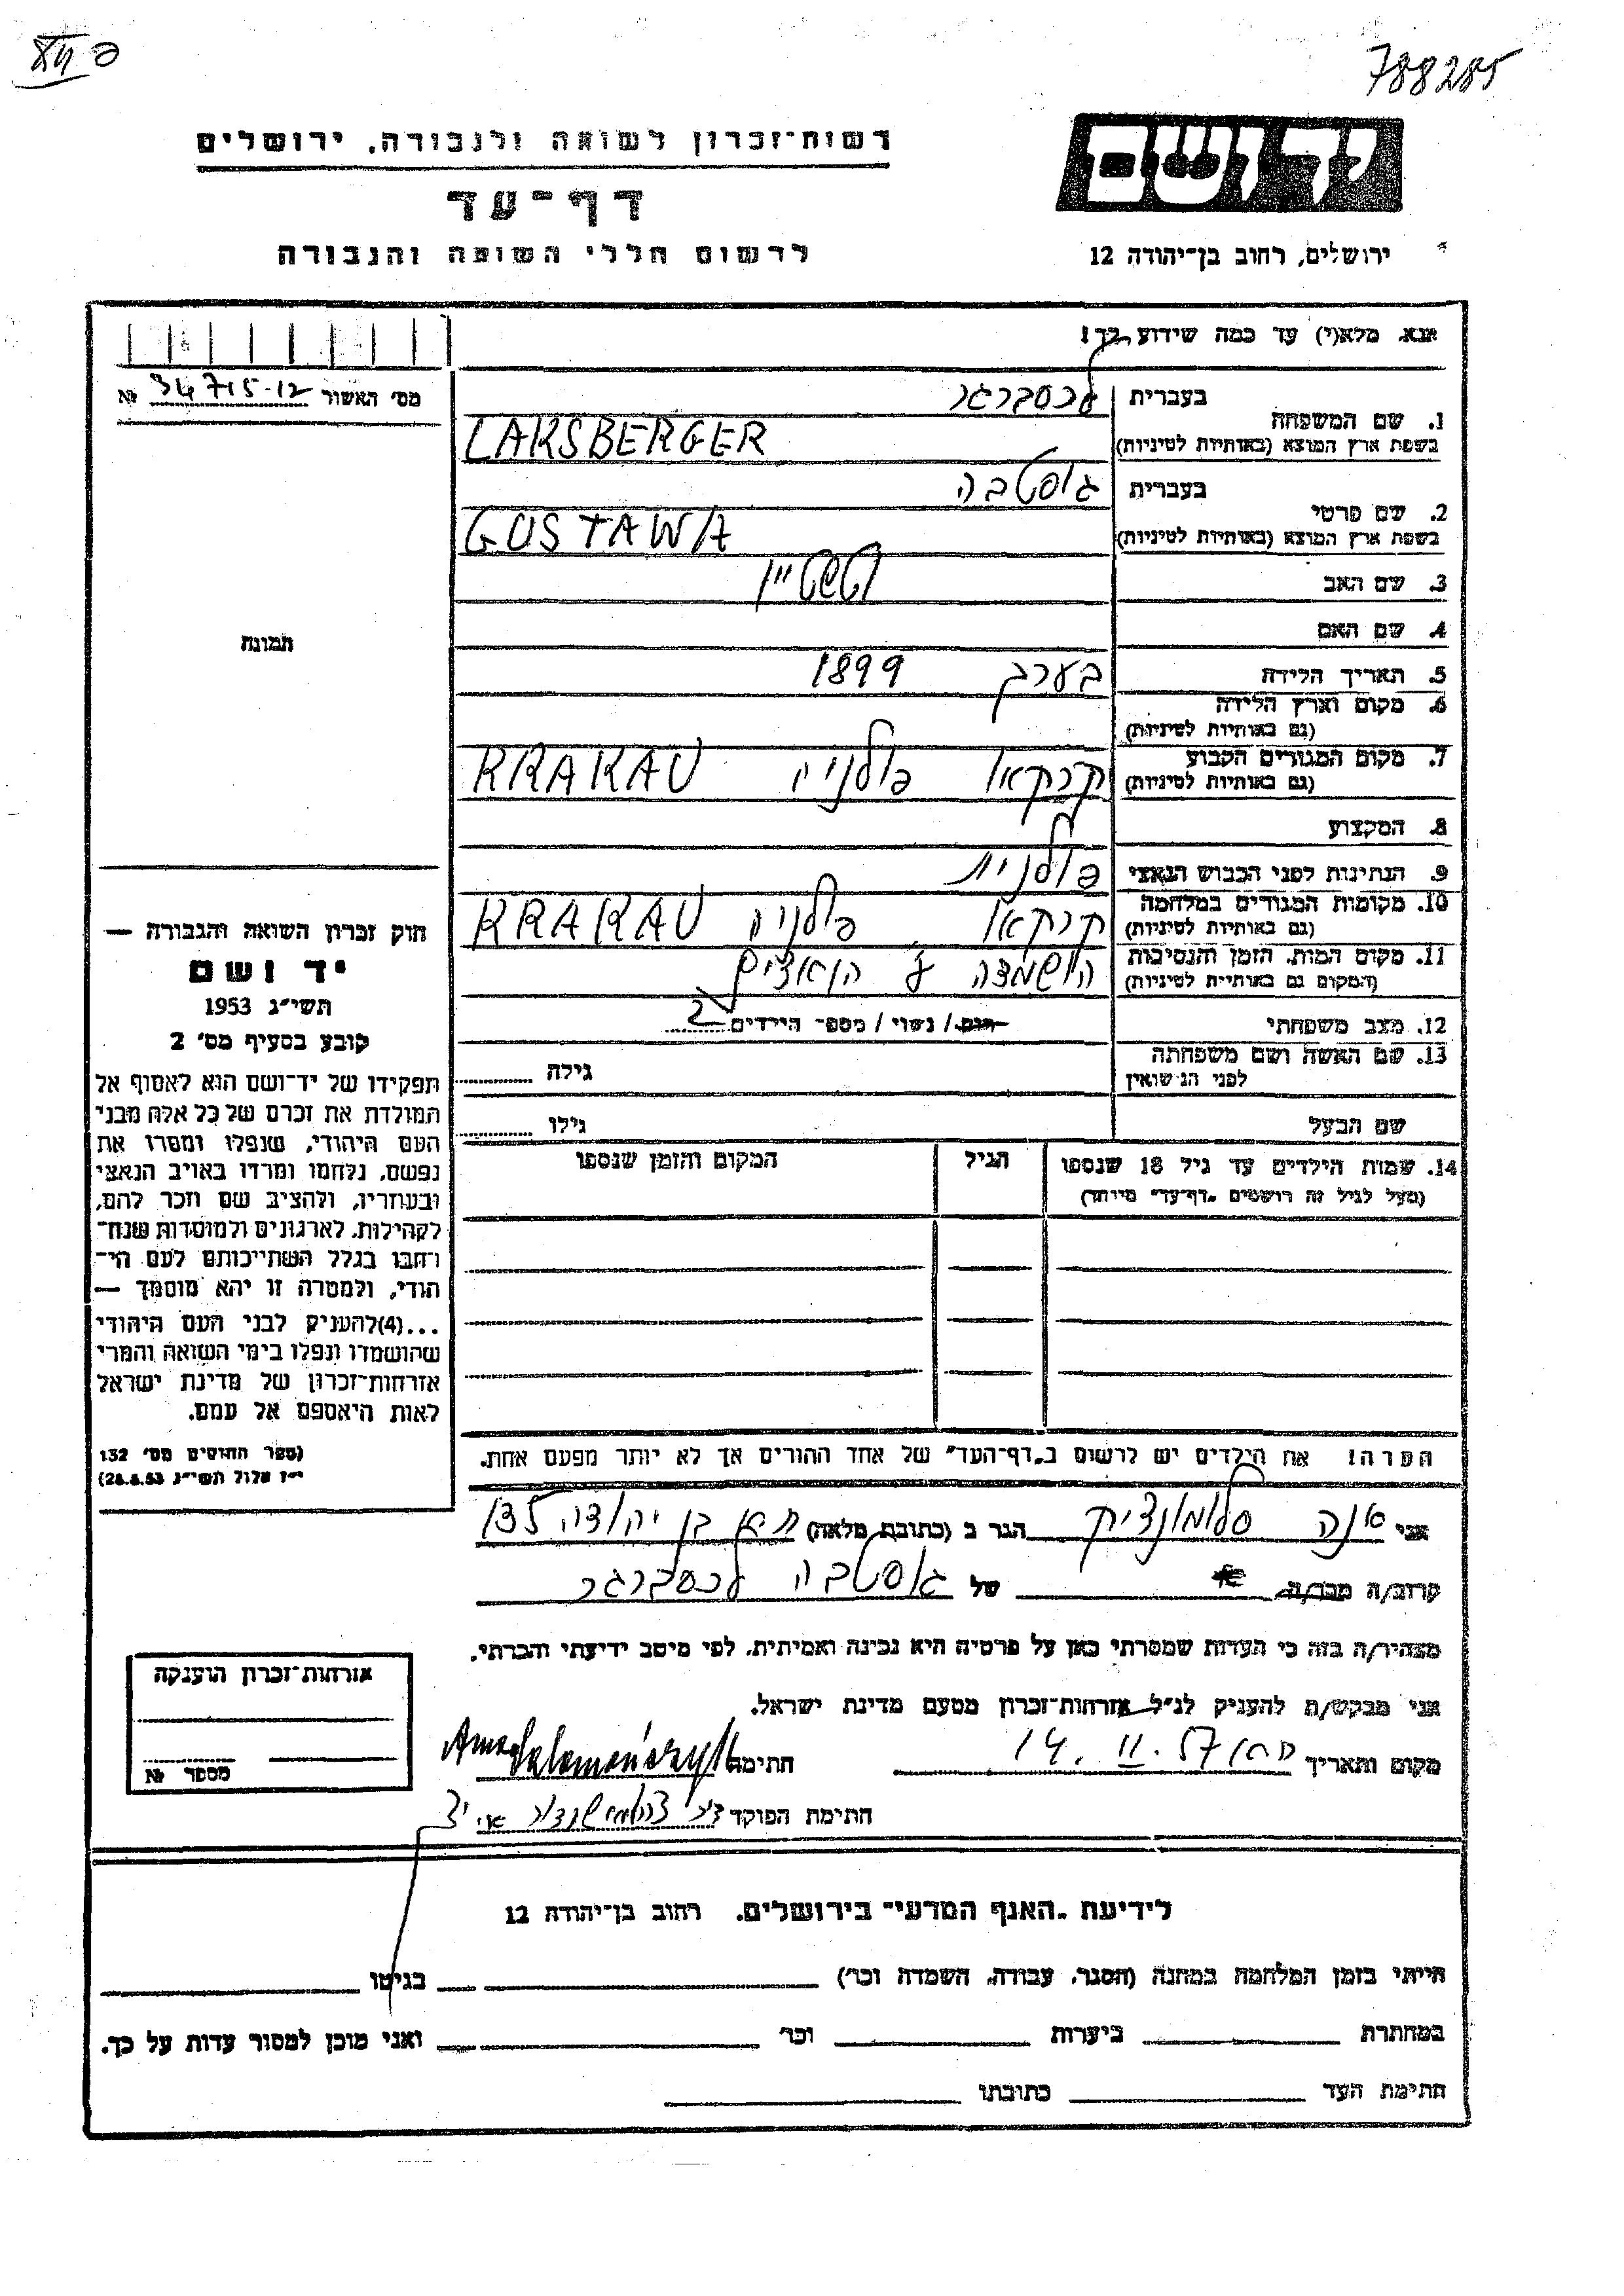 788285
רשות־זכרון לשואה ולגבורה, ירושלים
יד ושם
דף־עד
לרשום חללי השואה והגבורה
ירושלים, רחוב בן־יהודה 12
אנא, מלא(י) עד כמה שידוע לך!
מס' האשור 34715-12 №
1. שם המשפחה בעברית לכסברגר
בשפת ארץ המוצא (באותיות לטיניות) LAKSBERGER
2. שם פרטי בעברית גוסטבה
בשפת ארץ המוצא (באותיות לטיניות) GUSTAWA
3. שם האב
4. שם האם
תמונה
5. תאריך הלידה בערך 1899
6. מקום וארץ הלידה
(גם באותיות לטיניות)
7. מקום המגורים הקבוע
(גם באותיות לטיניות) קרקאו פולניה KRAKAU
8. המקצוע
9. הנתינות לפני הכבוש הנאצי פולנית
10. מקומות המגורים במלחמה
(גם באותיות לטיניות) קרקאו פולניה KRAKAU
11. מקום המות, הזמן והנסיבות
(המקום גם באותיות לטיניות) הושמדה ע"י הנאצים
12. מצב משפחתי רווק/ נשוי/ מספר הילדים 2
13. שם האשה ושם משפחתה
לפני הנשואין גילה
שם הבעל גילו
14. שמות הילדים עד גיל 18 שנספו הגיל המקום והזמן שנספו
(מעל לגיל זה רושמים "דף־עד" מיוחד)
חוק זכרון השואה והגבורה —
יד ושם
תשי"ג 1953
קובע בסעיף מס' 2
תפקידו של יד־ושם הוא לאסוף אל
המולדת את זכרם של כל אלה מבני
העם היהודי, שנפלו ומסרו את
נפשם, נלחמו ומרדו באויב הנאצי
ובעוזריו, ולהציב שם וזכר להם,
לקהילות, לארגונים ולמוסדות שנח־
רחבו בגלל השתייכותם לעם הי־
הודי, ולמטרה זו יהא מוסמך —
...(4)להעניק לבני העם היהודי
שהושמדו ונפלו בימי השואה והמרי
אזרחות־זכרון של מדינת ישראל
לאות היאספם אל עמם.
(ספר החוקים מס' 132
י"ז אלול תשי"ג 28.8.53)
הערה! את הילדים יש לרשום ב"דף־העד" של אחד ההורים אך לא יותר מפעם אחת.
אני אנה סלומונציק הגר ב (כתובת מלאה) ת"א בן יהודה 135
קרוב/ה מכר/ה של גוסטבה לכסברגר
מצהיר/ה בזה כי העדות שמסרתי כאן על פרטיה היא נכונה ואמיתית, לפי מיטב ידיעתי והכרתי.
אני מבקש/ת להעניק לנ"ל אזרחות־זכרון מטעם מדינת ישראל.
מקום ותאריך ת"א 14. II. 57 חתימה
חתימת הפוקד
אזרחות־זכרון הוענקה
מספר №
לידיעת "האגף המדעי" בירושלים, רחוב בן־יהודה 12
הייתי בזמן המלחמה במחנה (הסגר, עבודה, השמדה וכו') בגיטו
במחתרת ביערות וכו' ואני מוכן למסור עדות על כך.
חתימת העד כתובתו